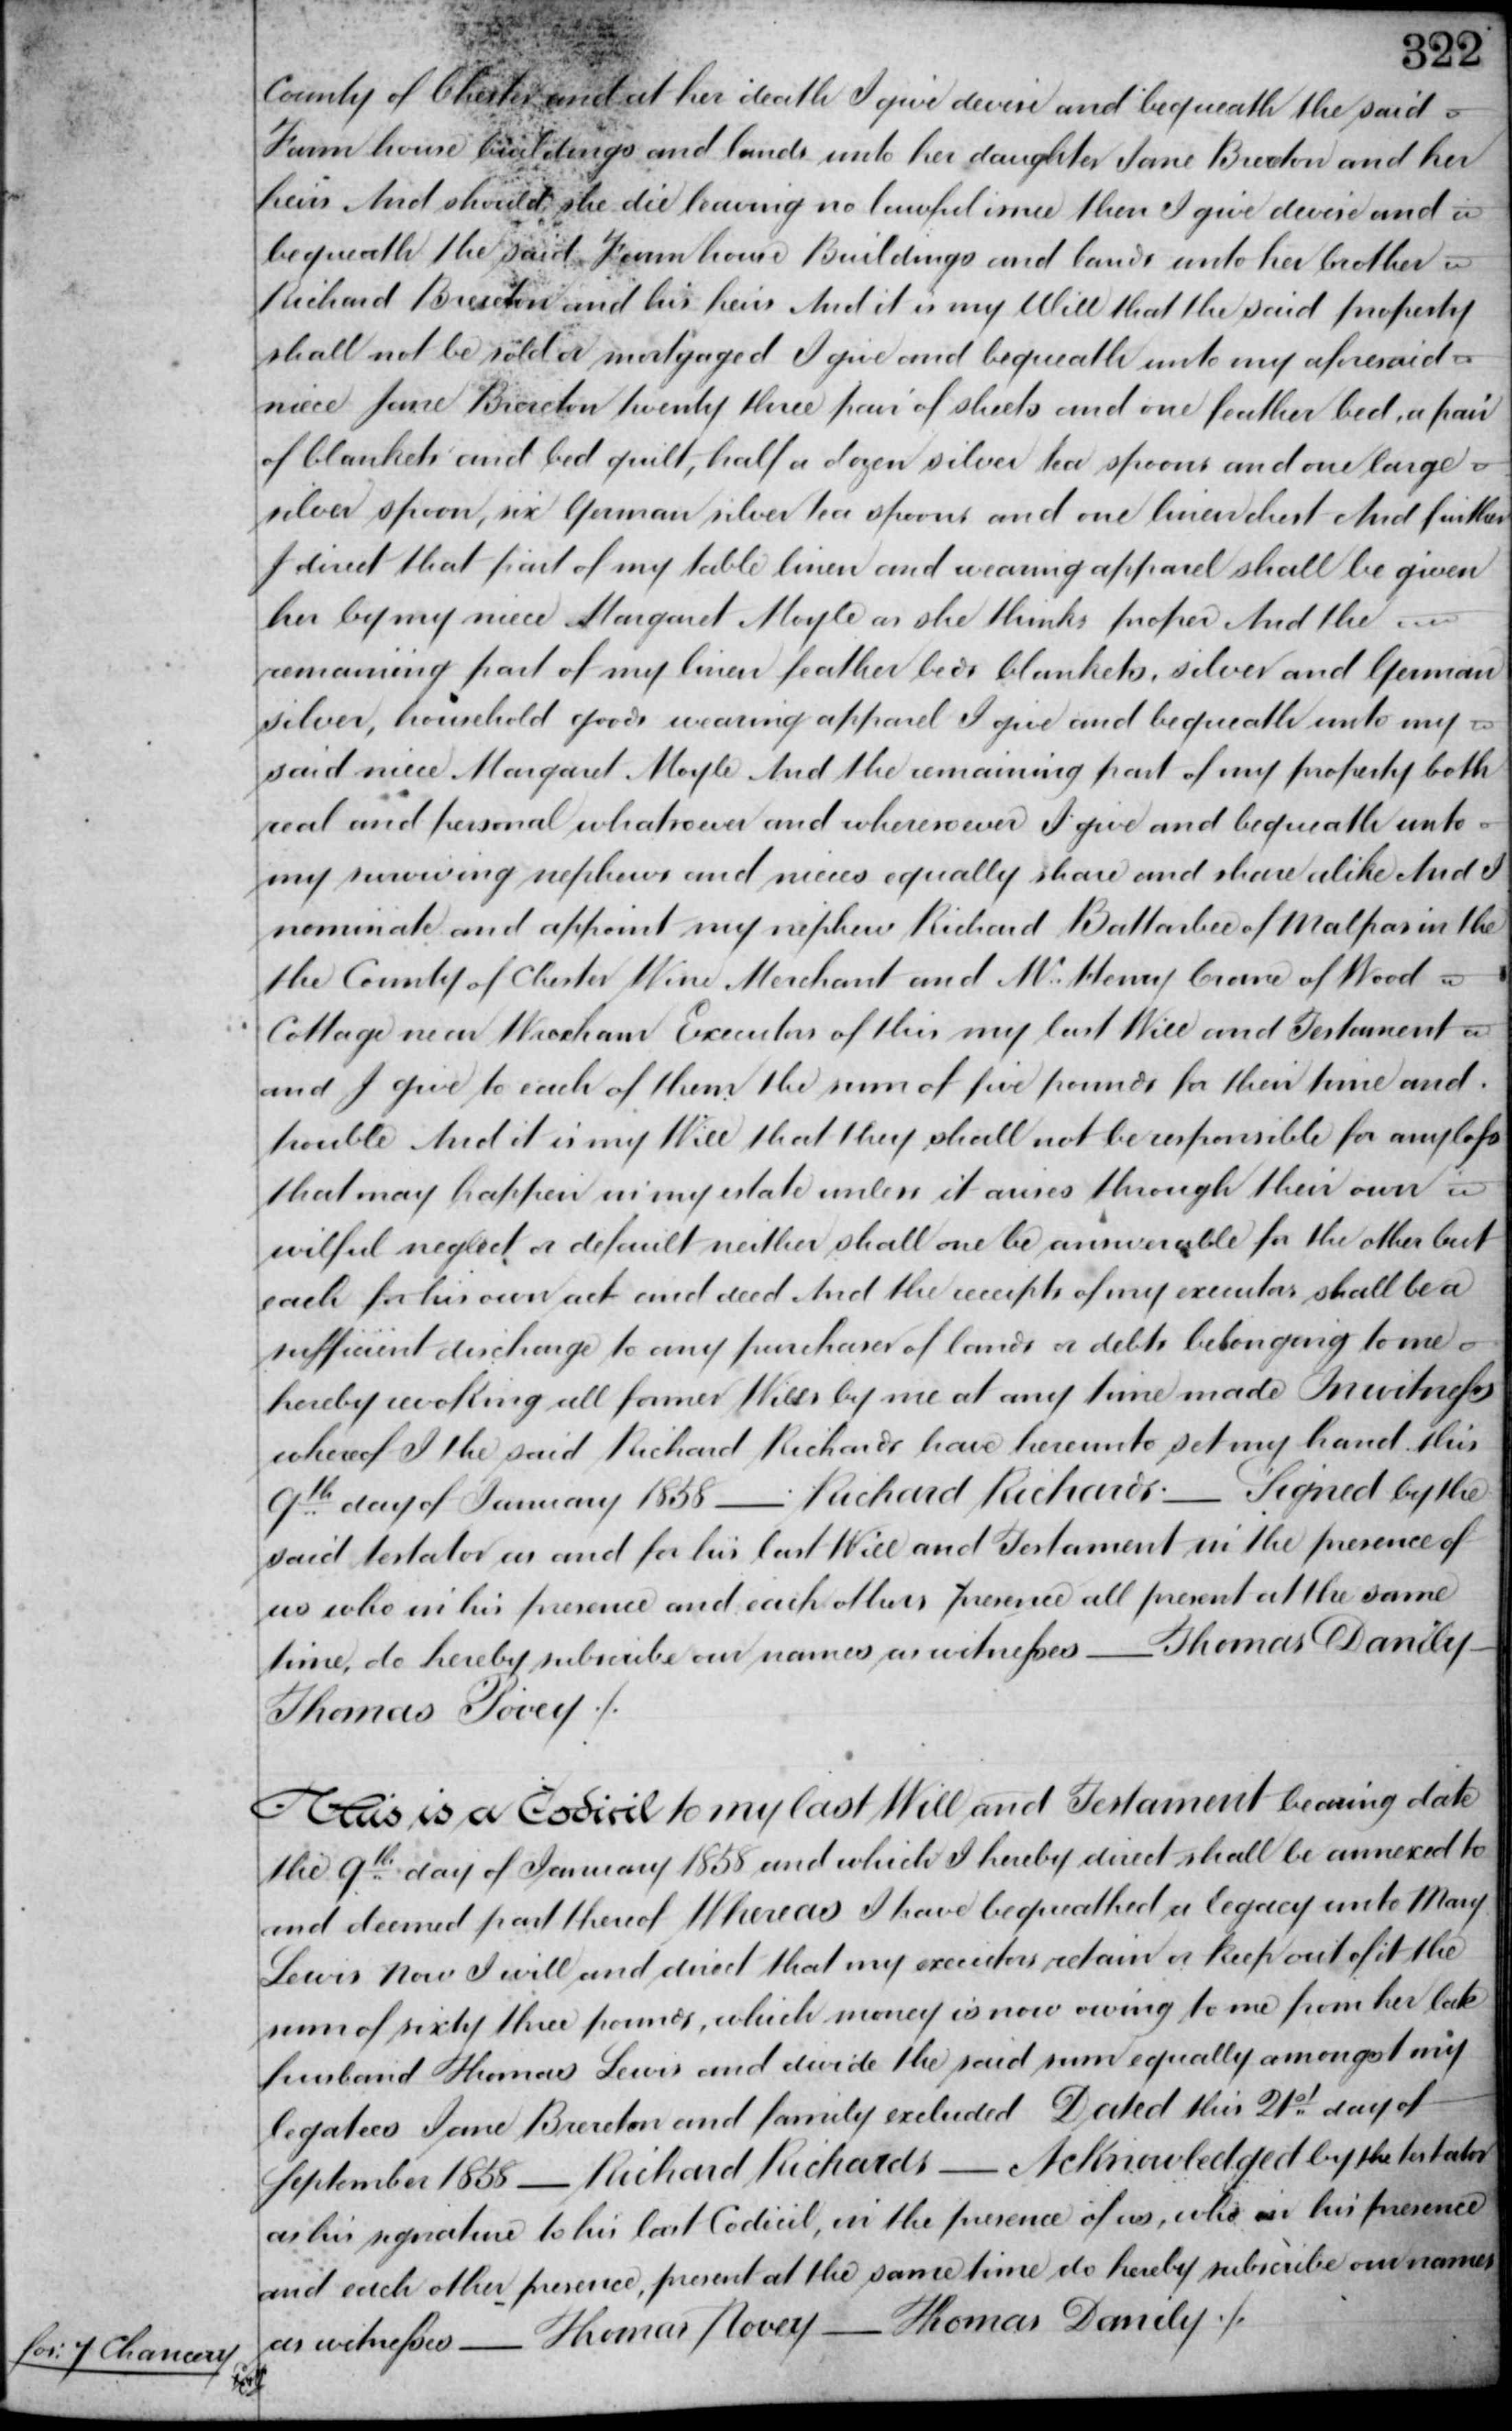 322
County of Chester and at her death I give devise and bequeath the said
Farm house buildings and lands unto her daughter Jane Brereton and her
heirs And should she die leaving no lawful issue then I give devise and
bequeath the said Farm house Buildings and lands unto her brother
Richard Brereton and his heirs And it is my Will that the said property
shall not be sold or mortgaged I give and bequeath unto my aforesaid
niece Jane Brereton twenty three pair of sheets and one feather bed, a pair
of blankets and bed quilt, half a dozen silver tea spoons and one large
silver spoon, six German silver tea spoons and one linen chest And further
I direct that part of my table linen and wearing apparel shall be given
her by my niece Margaret Moyle as she thinks proper And the
remaining part of my linen feather beds blankets, silver and German
silver, household goods wearing apparel I give and bequeath unto my
said niece Margaret Moyle And the remaining part of my property both
real and personal whatsoever and wheresoever I give and bequeath unto
my surviving nephews and nieces equally share and share alike And I
nominate and appoint my nephew Richard Battarbee of Malpas in the
the County of Chester Wine Merchant and Mr. Henry Crane of Wood
Cottage near Wrexham Executors of this my last Will and Testament
and I give to each of them the sum of five pounds for their time and
trouble And it is my Will that they shall not be responsible for any loss
that may happen in my estate unless it arises through their own
wilful neglect or default neither shall one be answerable for the other but
each for his own act and deed And the receipts of my executors shall be a
sufficient discharge to any purchaser of lands or debts belonging to me
hereby revoking all former Wills by me at any time made In witness
whereof I the said Richard Richards have hereunto set my hand this
9th day of January 1858 — Richard Richards — Signed by the
said testator as and for his last Will and Testament in the presence of
us who in his presence and each others presence all present at the same
time, do hereby subscribe our names as witnesses — Thomas Danily —
Thomas Povey ./.
This is a Codicil to my last Will and Testament bearing date
the 9th day of January 1858 and which I hereby direct shall be annexed to
and deemed part thereof Whereas I have bequeathed a legacy unto Mary
Lewis Now I will and direct that my executors retain or keep out of it the
sum of sixty three pounds, which money is now owing to me from her late
husband Thomas Lewis and divide the said sum equally amongst my
legatees Jane Brereton and family excluded Dated this 21st day of
September 1858 — Richard Richards — Acknowledged by the testator
as his signature to his last Codicil, in the presence of us, who in his presence
and each other presence, present at the same time do hereby subscribe our names
as witnesses — Thomas Povey — Thomas Danily ./.
fos: 7 Chancery